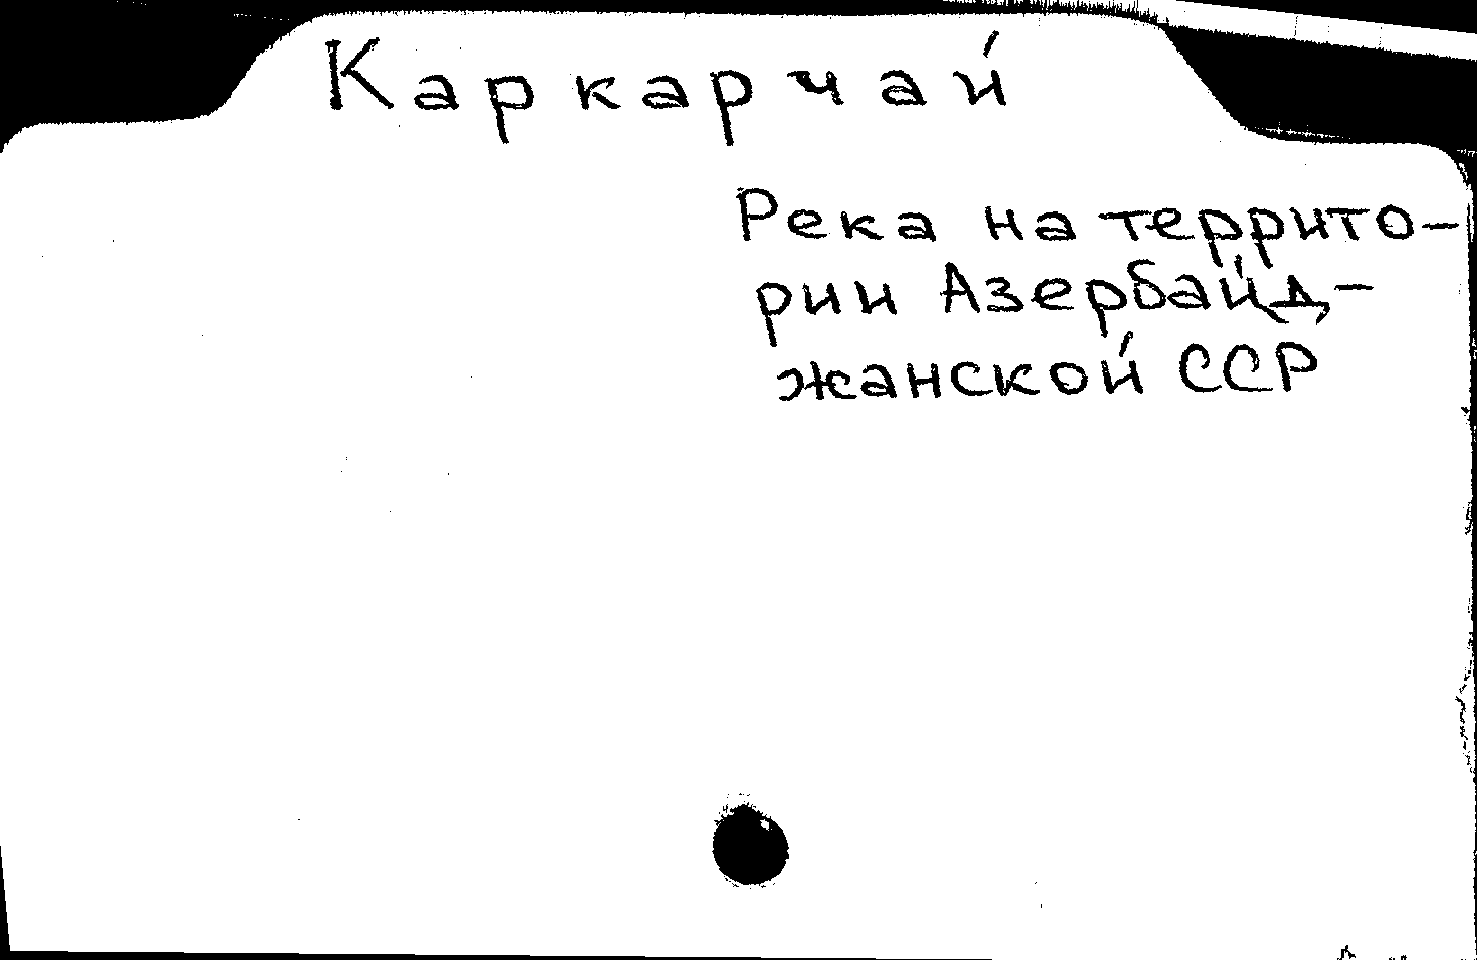 Каркарчай
Река на террито-
рии Азербайд-
жанской ССР